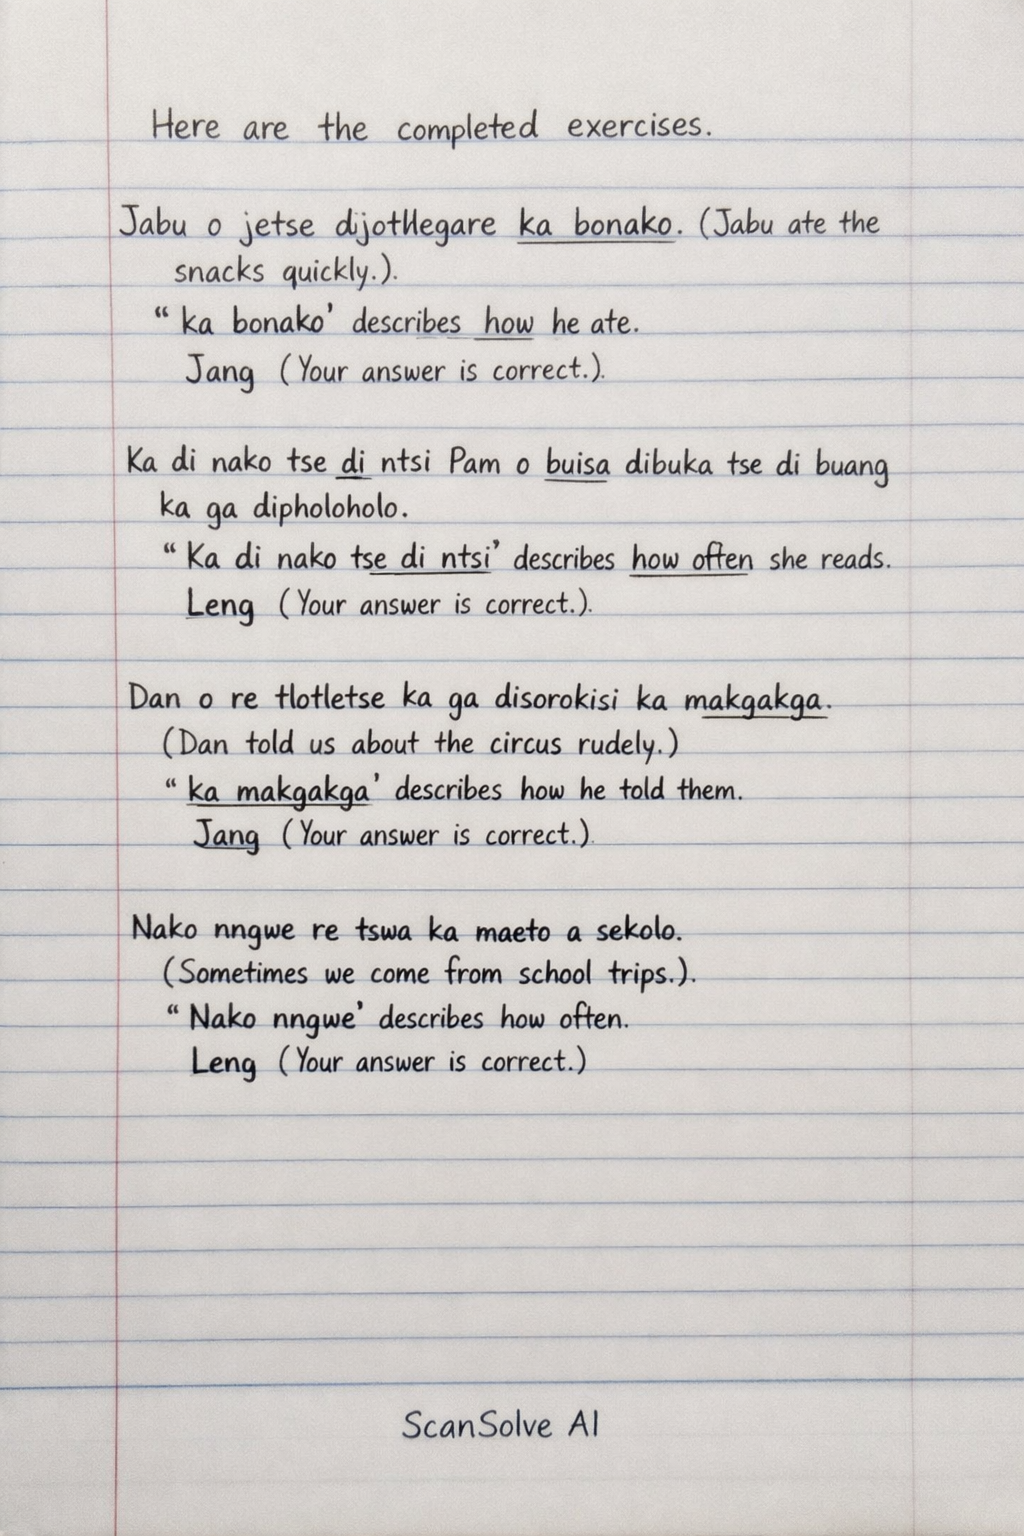 Here are the completed exercises.
Jabu o jetse dijotllegare ka bonako. (Jabu ate the
snacks quickly.).
“ ka bonako’ describes how he ate.
Jang (Your answer is correct.).
Ka di nako tse di ntsi Pam o buisa dibuka tse di buang
ka ga dipholoholo.
“ Ka di nako tse di ntsi’ describes how often she reads.
Leng (Your answer is correct.).
Dan o re tlotletse ka ga disorokisi ka makgakga.
(Dan told us about the circus rudely.)
“ ka makgakga’ describes how he told them.
Jang (Your answer is correct.).
Nako nngwe re tswa ka maeto a sekolo.
(Sometimes we come from school trips.).
“ Nako nngwe’ describes how often.
Leng (Your answer is correct.)
ScanSolve AI